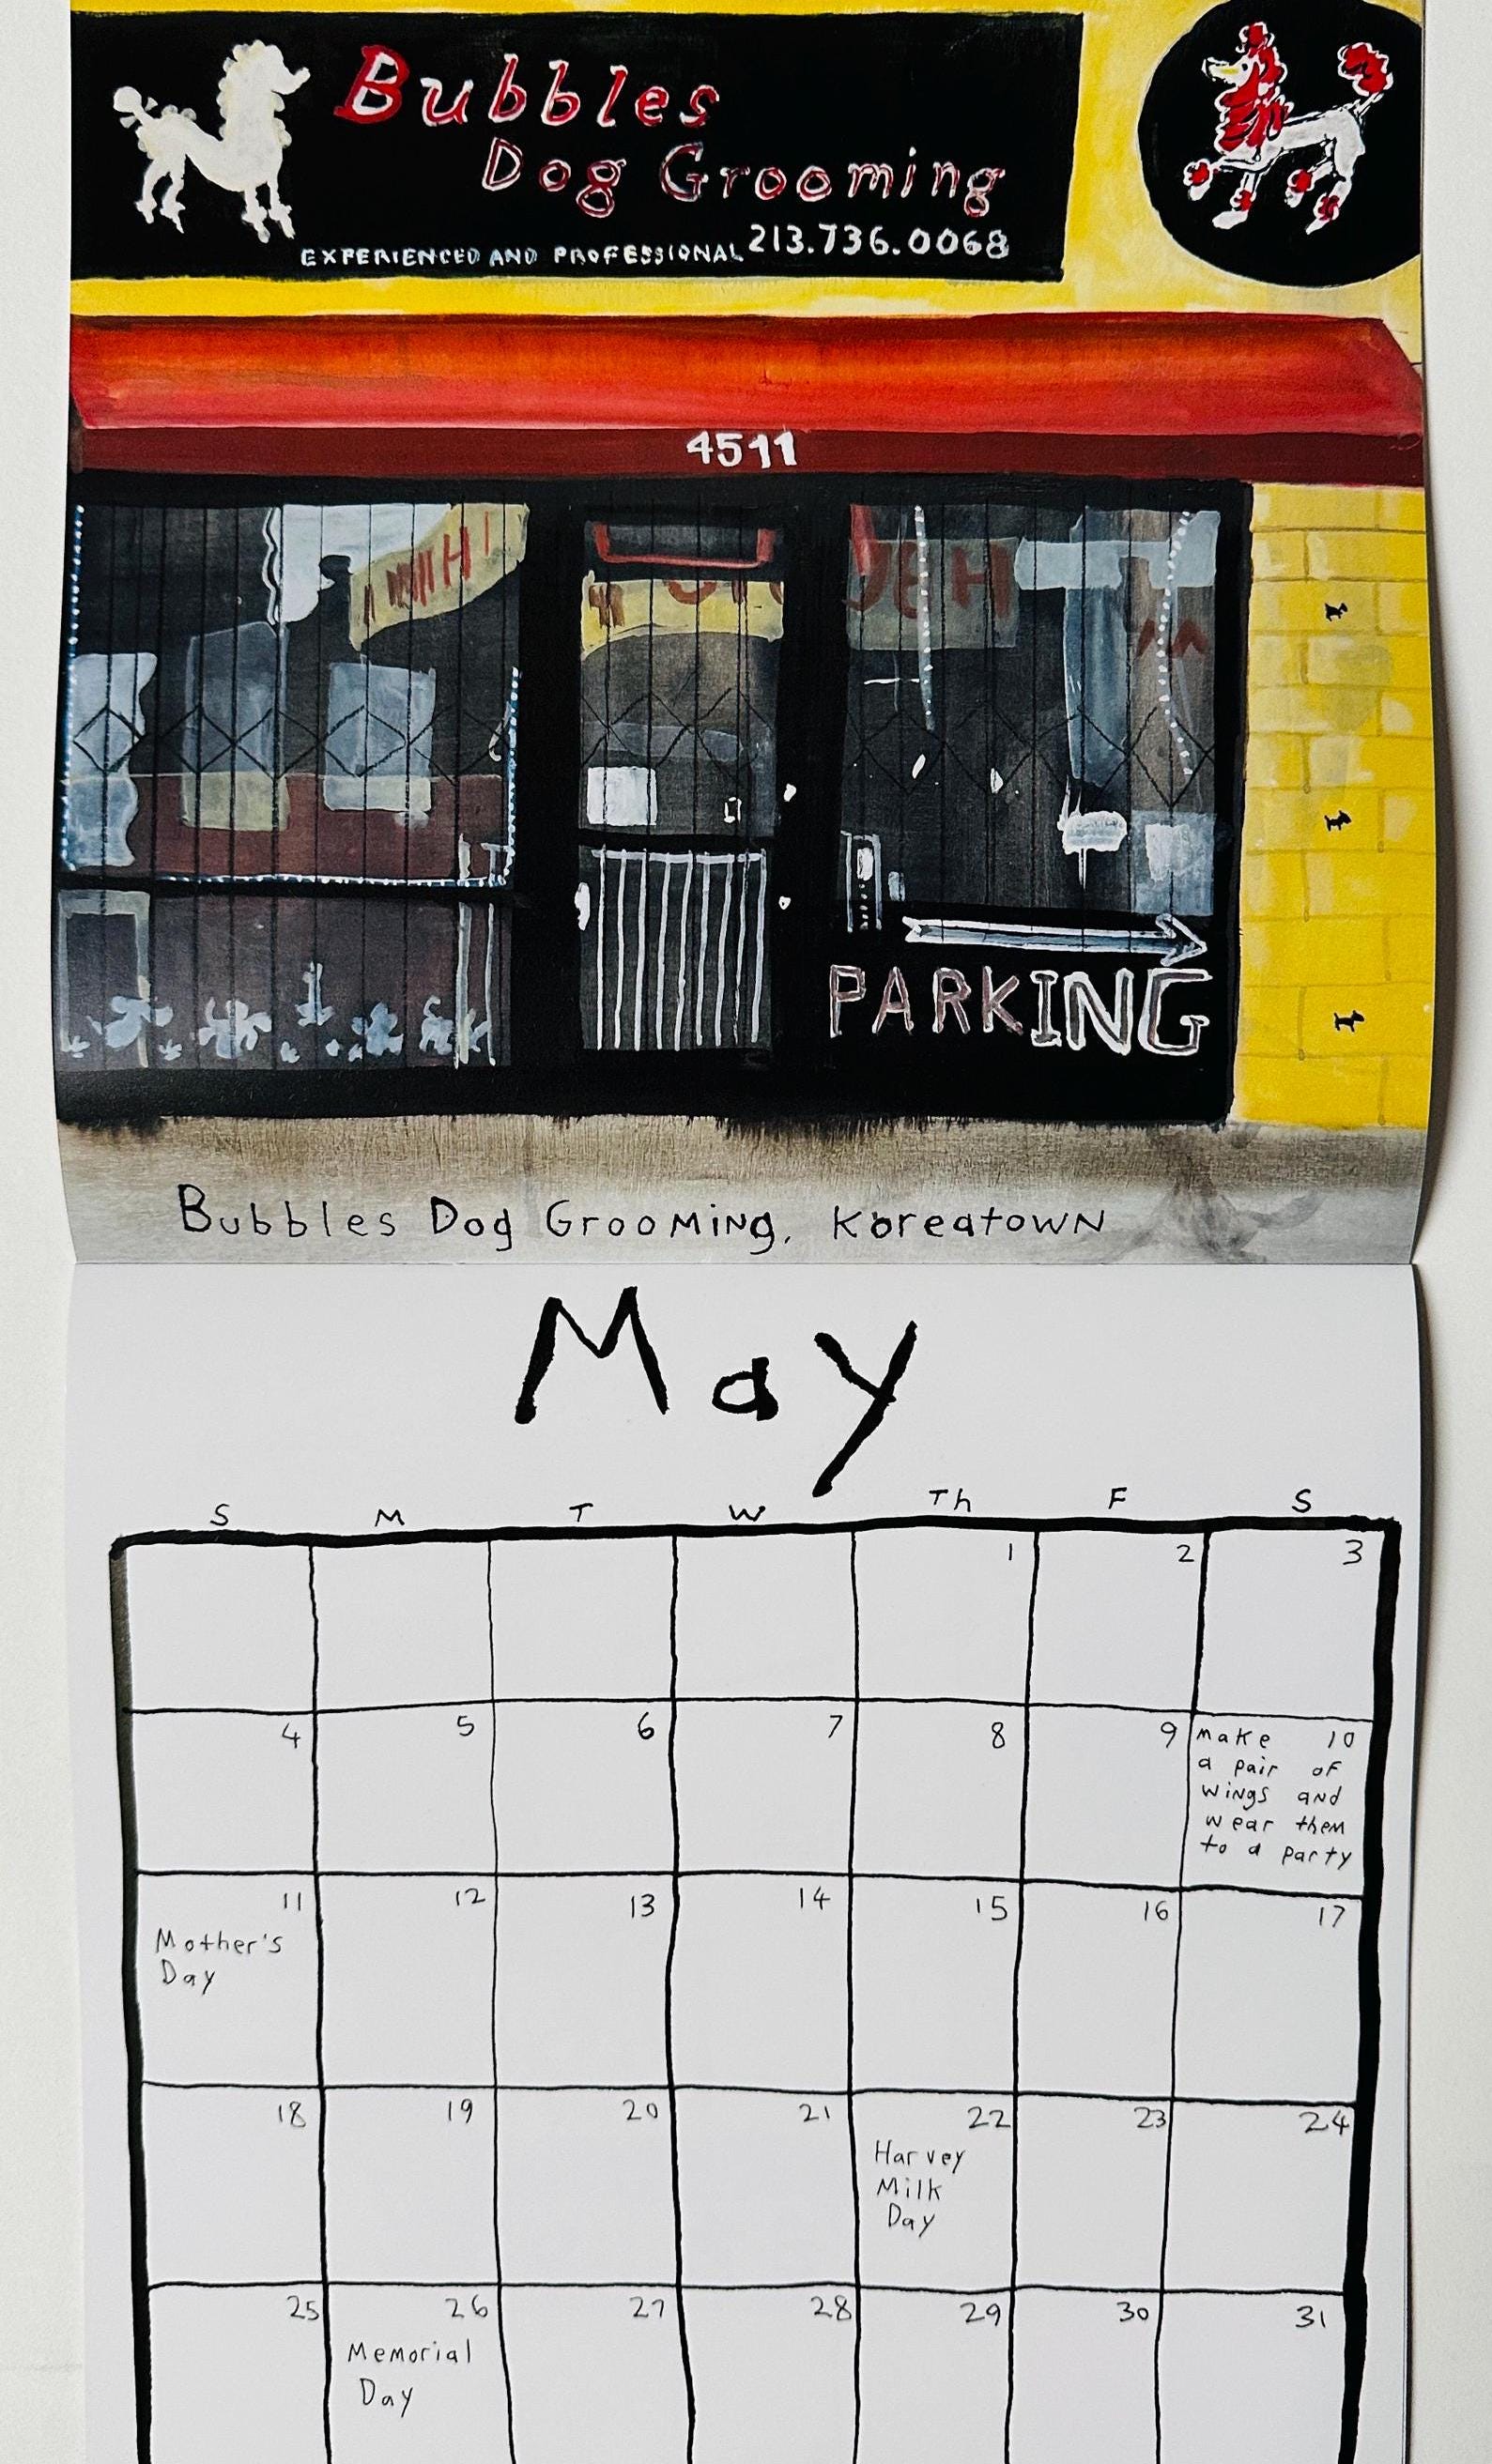 Bubbles
Dog Grooming
EXPERIENCED AND PROFESSIONAL 213.736.0068
4511
PARKING
Bubbles Dog Grooming, Koreatown
May
S M T W Th F S
1 2 3
4 5 6 7 8 9 10
make
a pair of
wings and
wear them
to a party
11 12 13 14 15 16 17
Mother's
Day
18 19 20 21 22 23 24
Harvey
Milk
Day
25 26 27 28 29 30 31
Memorial
Day